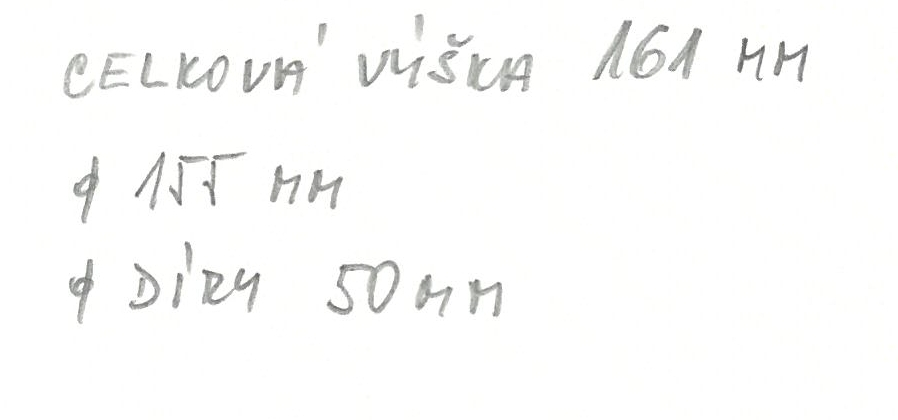 CELKOVÁ VÝŠKA 161 MM
φ 155 MM
φ DÍRY 50 MM